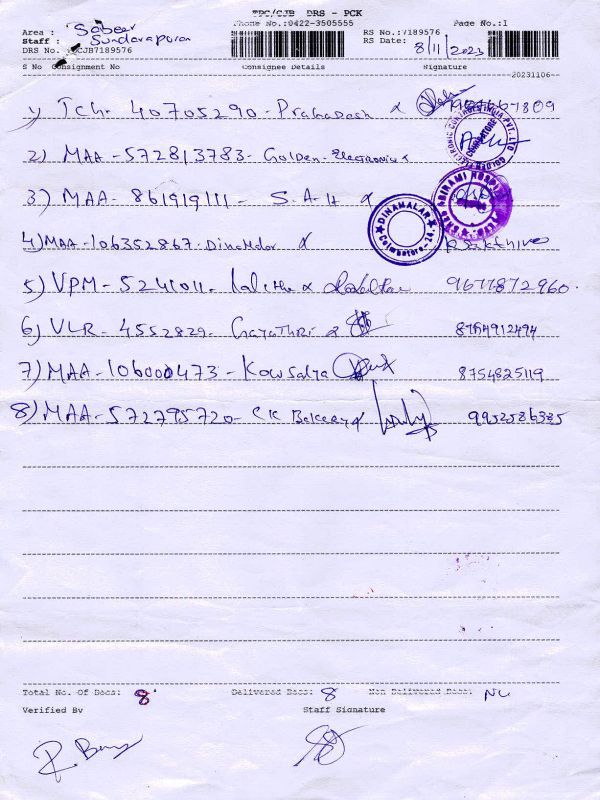 TPC/CJB DRS - PCK
Phone No.:0422-3505555 Page No.:1
Area : Sabeer RS No.:7189576
Staff : Sundarapuram RS Date: 8/11/2023
DRS No. CJB7189576
S No Consignment No Consignee Details Signature
20231106
1) Tch - 40705290 - Prakadesh
2) MAA - 572813783 - Golden - Electronics
3) MAA - 861919111 - S.A.H
DINAMALAR Coimbatore-24
4) MAA - 106352867 - Dinamalar
5) VPM - 5241011 - Lalitha 9677872960
6) VLR - 4552829 - Gayathri 8754912494
7) MAA - 106000473 - Kowsalya 8754825119
8) MAA - 572795720 - CK Bakery 9952586335
Total No. Of Docs: 8 Delivered Docs: 8 Non Delivered Docs:
Verified By Staff Signature